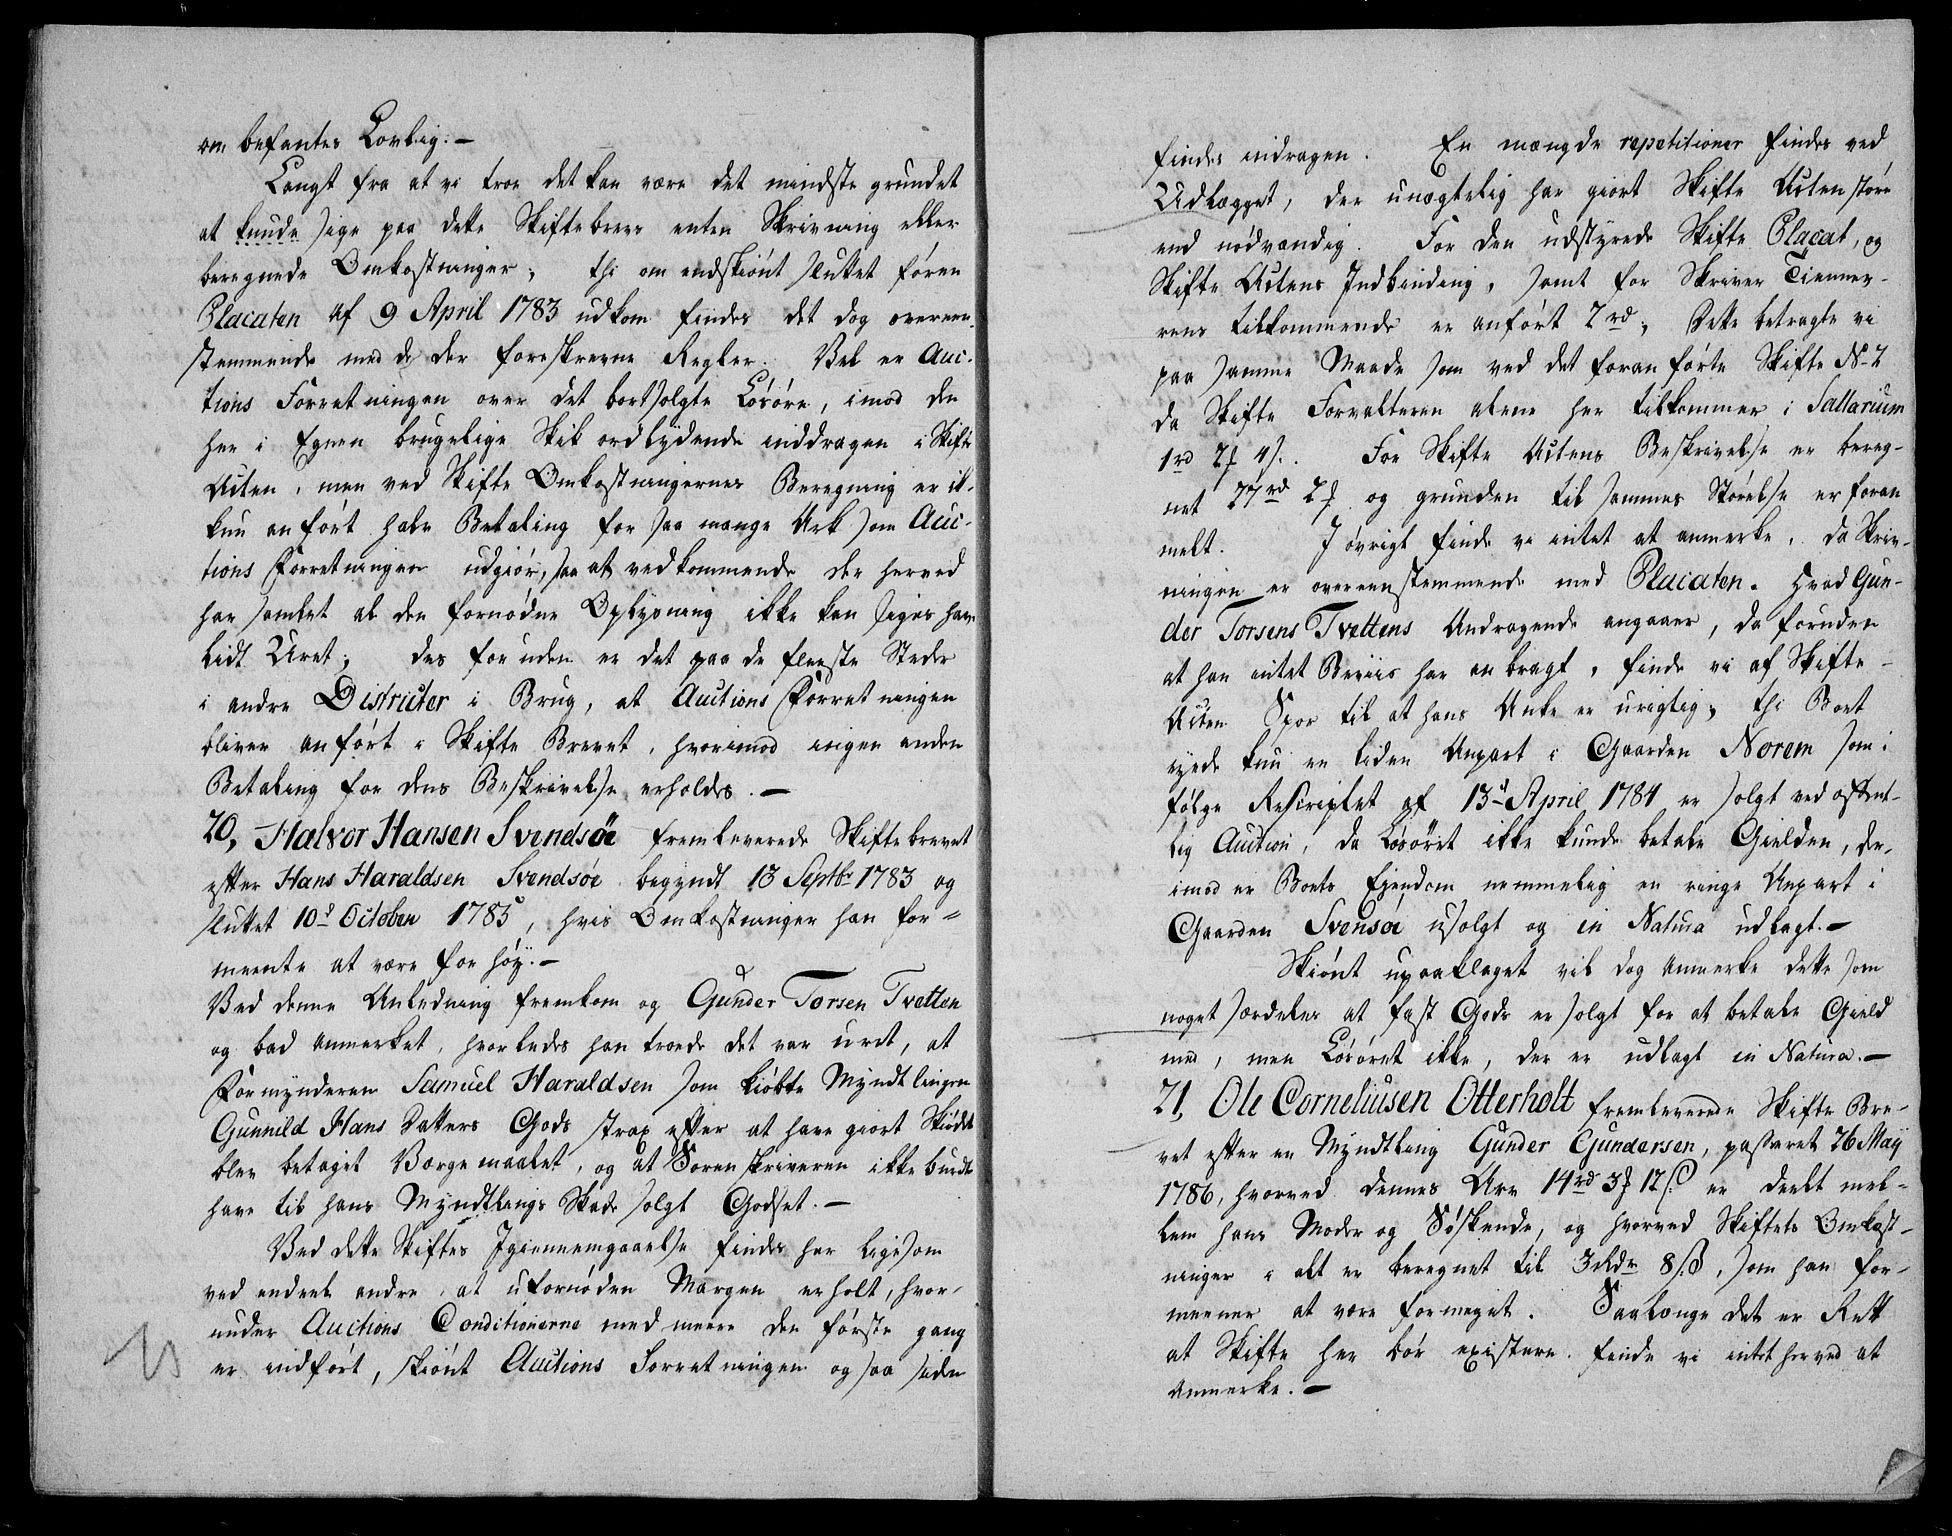 om befantes Lovlig. –
Langt fra at vi troe det kan være det mindste grundet
at kunde sige paa dette Skiftebrevs enten Skrivning eller
beregnede Omkostninger, thi om endskiønt sluttet føren
Placaten af 9 April 1783 udkom findes det dog overeens-
stemmende med de der foreskrevne Regler. Vel er Auc-
tions Forretningen over det bortsolgte Løsøre, imod den
her i Egnen brugelige Skik ordlydende inddragen i Skifte
Acten, men ved Skifte Omkostningernes Beregning er ik-
kun anført halv Betaling for saa mange Ark som Auc-
tions Forretningen udgiør, saa at vedkommende der herved
har samlet al den fornødne Oplysning ikke kan siges have
lidt Uret; des foruden er det paa de fleeste Steder
i andre Districter i Brug, at Auctions Forretningen
bliver anført i Skifte Brevet, hvorimod ingen anden
Betaling for dens Beskrivelse erholdes. –
20, Halvor Hansen Svendsøe fremleverede Skiftebrevet
efter Hans Haraldsen Svendsøe begyndt 13 Septbr 1783 og
sluttet 10d October 1785, hvis Omkostninger han for=
meente at være for høy. –
Ved denne Anledning fremkom og Gunder Torsen Tvetten
og bad anmerket, hvorledes han troede det var uret, at
Formynderen Samuel Haraldsen som kiøbte Myndtlingen
Gunnild Hans Datters Gods strax efter at have giort Skiødet
blev betaget Værgemaalet, og at Sorenskriveren ikke burdt
have til hans Myndtlings Skade solgt Godset. –
Ved dette Skiftes Igiennemgaaelse findes her ligesom
ved endeel andre at ufornøden Margen er holt, hvor-
under Auctions Conditionerne med meere den første gang
er indført, skiønt Auctions Forretningen ogsaa siden
findes indragen. En mængde repetitioner findes ved
Udlægget, der unægtelig har giort Skifte Acten større
end nødvændig. For den udstyrede Skifte Placat, og
Skifte Actens Indbinding, samt for Skriver Tienner-
rens tilkommende er anført 2 rd, Dette betragte vi
paa samme Maade som ved det foran førte Skifte No 2
da Skifte Forvalteren alene her tilkommer i Sallarium
1 rd 2 ƒ 4 s. For Skifte Actens Beskrivelse er bereg-
net 27 rd 2 ƒ og grunden til sammes Størelse er foran
melt. I øvrigt finde vi intet at anmerke, da Skriv-
ningen er overeenstemmende med Placaten. Hvad Gun-
der Torsens Tvettens Andragende angaaer, da foruden
at han intet Beviis har anbragt, finde vi af Skifte-
Acten Spor til at hans Anke er urigtig, thi Boet
eyede kun en liden Anpart i Gaarden Norem som i
følge Rescriptet af 13d April 1784 er solgt ved offent-
lig Auction, da Løsøret ikke kunde betale Gielden, der-
imod er Boets Ejendom nemmelig en ringe Anpart i
Gaarden Svensøe usolgt og in Natura udlagt. –
Skiønt upaaklaget vil dog anmerke dette som
noget særdeles at fast Gods er solgt for at betale Gield
med, men Løsøret ikke, der er udlagt in Natura. –
21, Ole Corneliusen Otterholt fremleverede Skifte Bre-
vet efter en Myndtling Gunder Gundersen, passeret 26 May
1786, hvorved dennes Arv 14 rd 3 ƒ 12 s er deelt mel-
lem hans Moder og Søskende, og hvorved Skiftets Omkost-
ninger i alt er beregnet til 3 Rdr 8 s, som han for-
meener at være formeget. Saalænge det er Rett
at Skifte her bør existere, finde vi intet herved at
anmerke. –